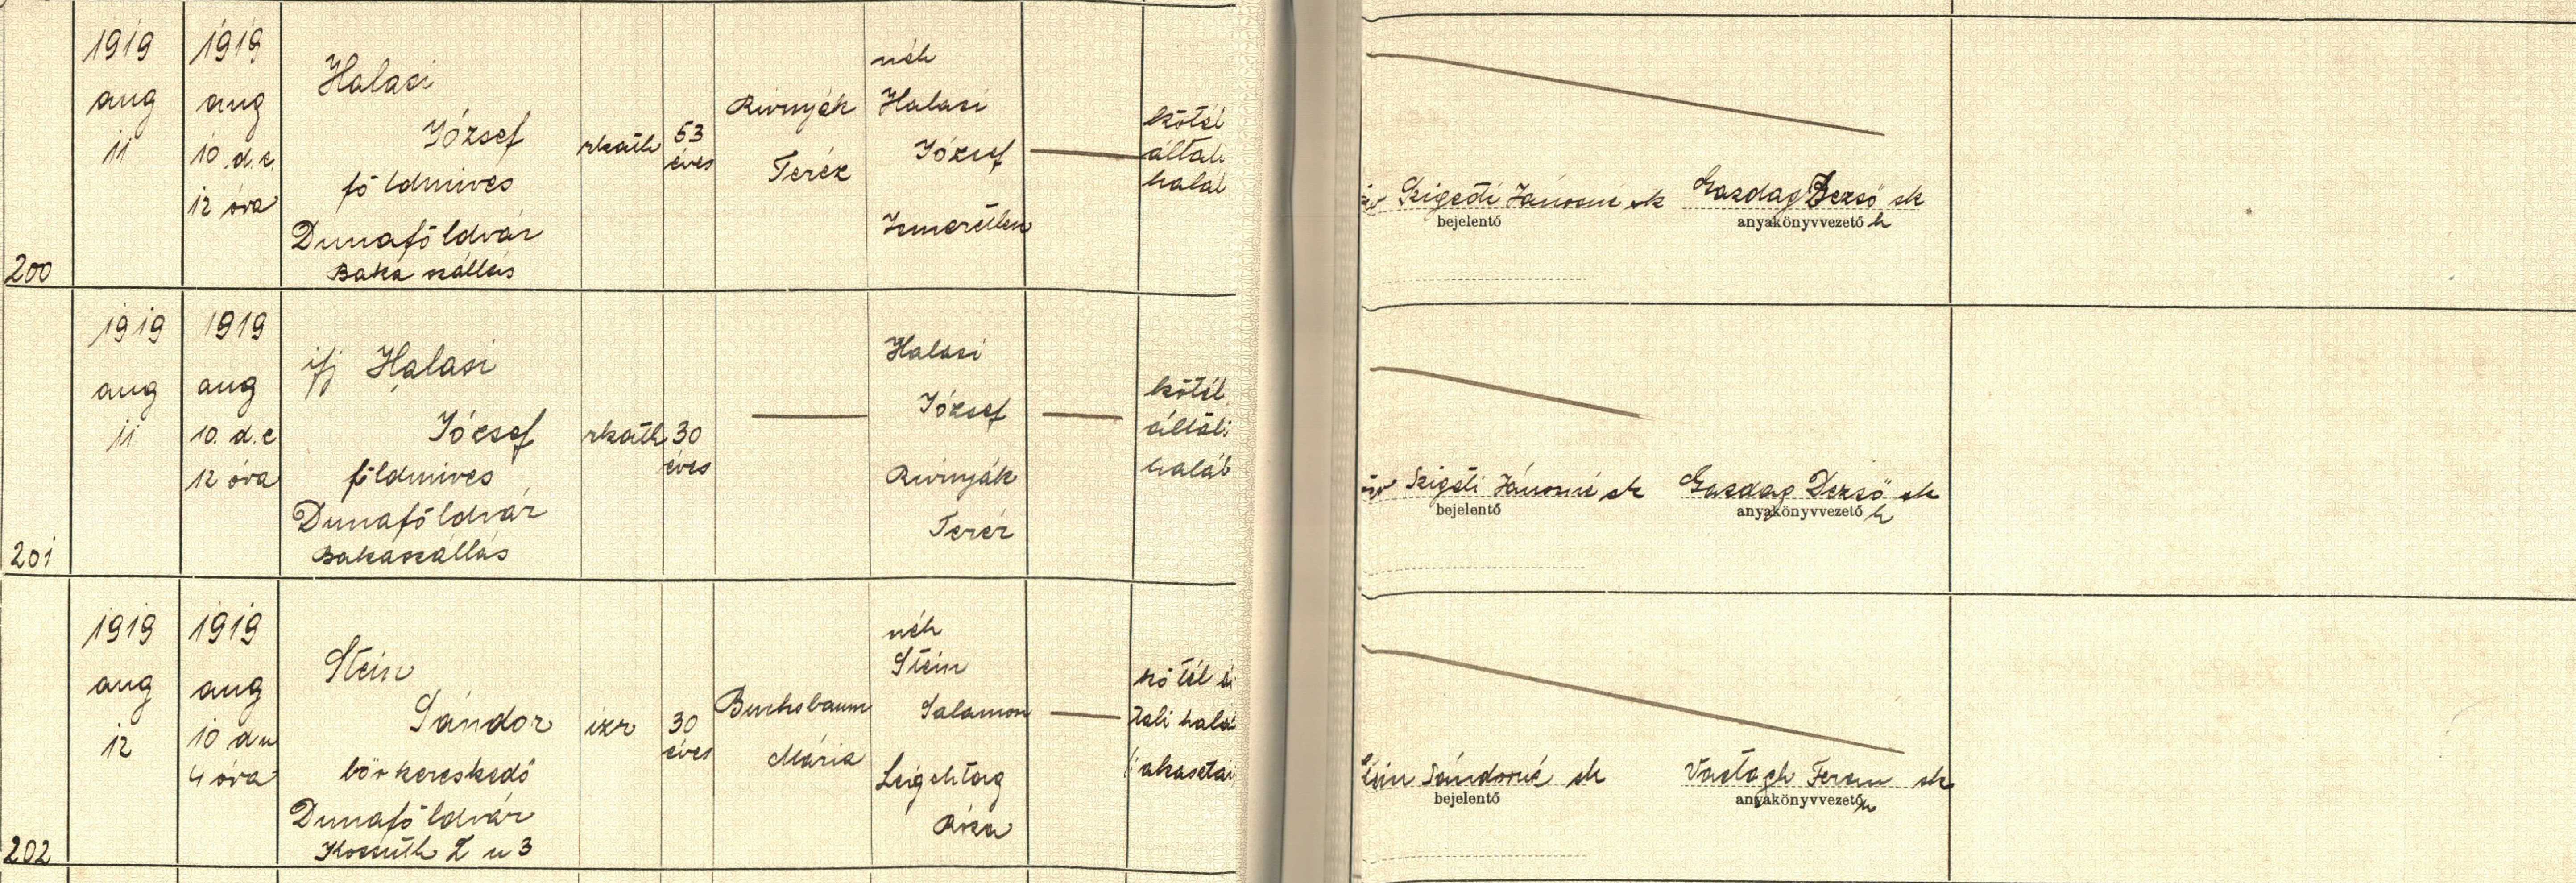 200
1919
aug
11
1919
aug
10 d.e.
12 óra
Halasi
József
földmives
Dunaföldvár
Baka szállás
rkath
53
éves
Rivnyák
Teréz
néh
Halasi
József
Ismeretlen
kötél
általi
halál
Szigeti Jánosné sk
bejelentő
Gazdag Dezső sk
anyakönyvvezető h
201
1919
aug
11
1919
aug
10. d.e
12 óra
ifj Halasi
József
földmives
Dunaföldvár
Bakaszállás
rkath
30
éves
Halasi
József
Rivnyák
Teréz
kötél
általi
halál
Szigeti Jánosné sk
bejelentő
Gazdag Dezső sk
anyakönyvvezető h
202
1919
aug
12
1919
aug
10 du
4 óra
Stein
Sándor
bőrkereskedő
Dunaföldvár
Kossuth L u 3
izr
30
éves
Buchsbaum
Mária
néh
Stein
Salamon
Leigehtag
Róza
kötél á
tali halál
akasztás
Stein Sándorné sk
bejelentő
Vastagh Ferenc sk
anyakönyvvezető h